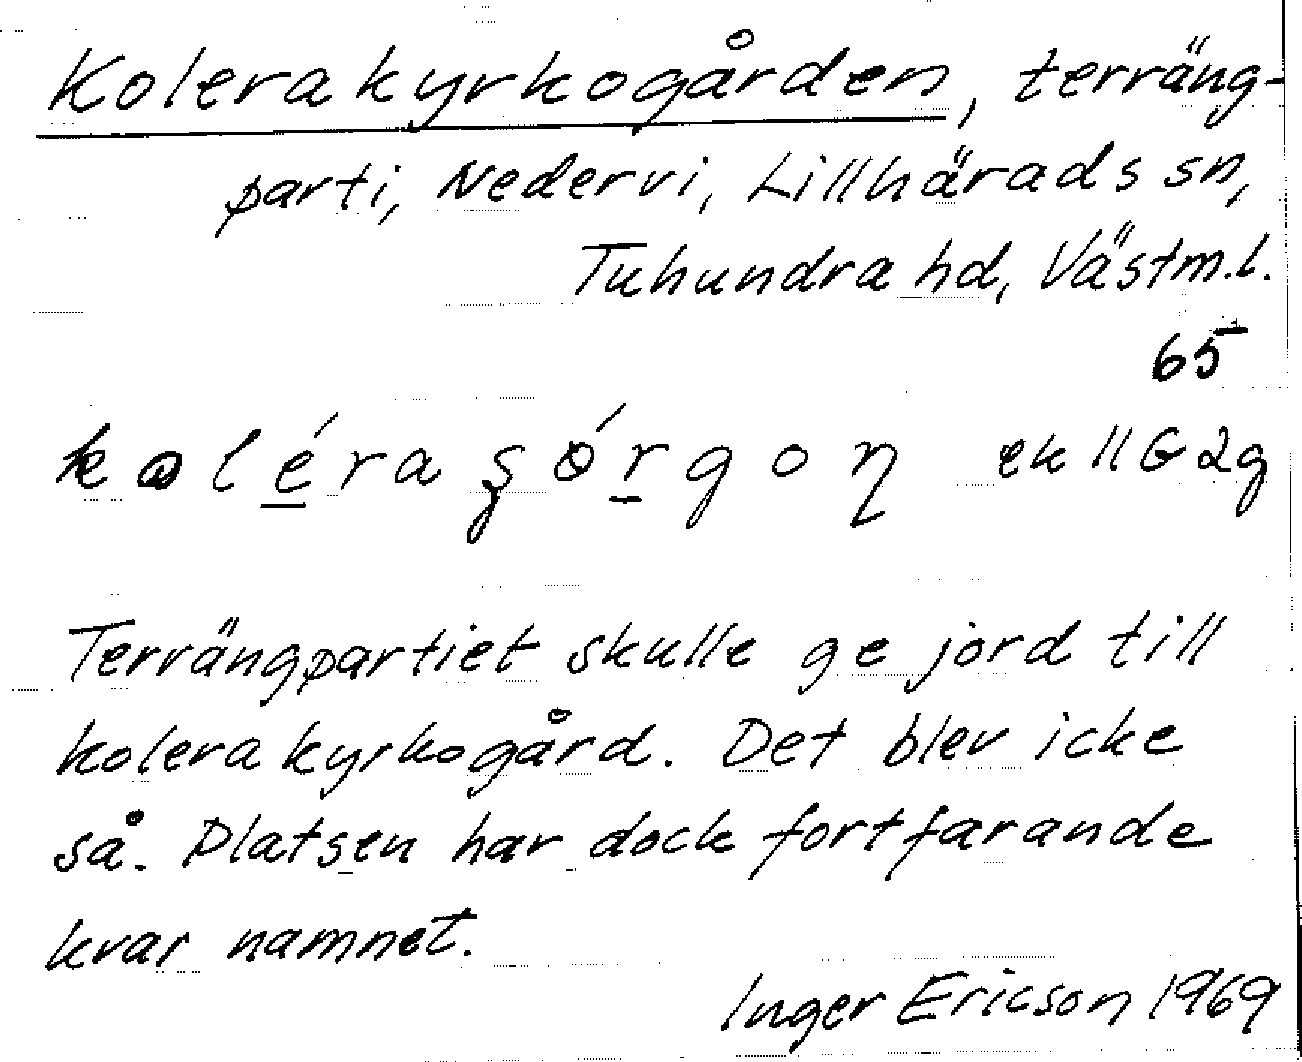 Kolerakyrkogården, terräng-
parti, Nedervi, Lillhärads sn,
Tuhundra hd, Västm.l.
65
koléraşórgon ek 11G2g
Terrängpartiet skulle ge jord till
kolerakyrkogård. Det blev icke
så. Platsen har dock fortfarande
kvar namnet.
Inger Ericson 1969